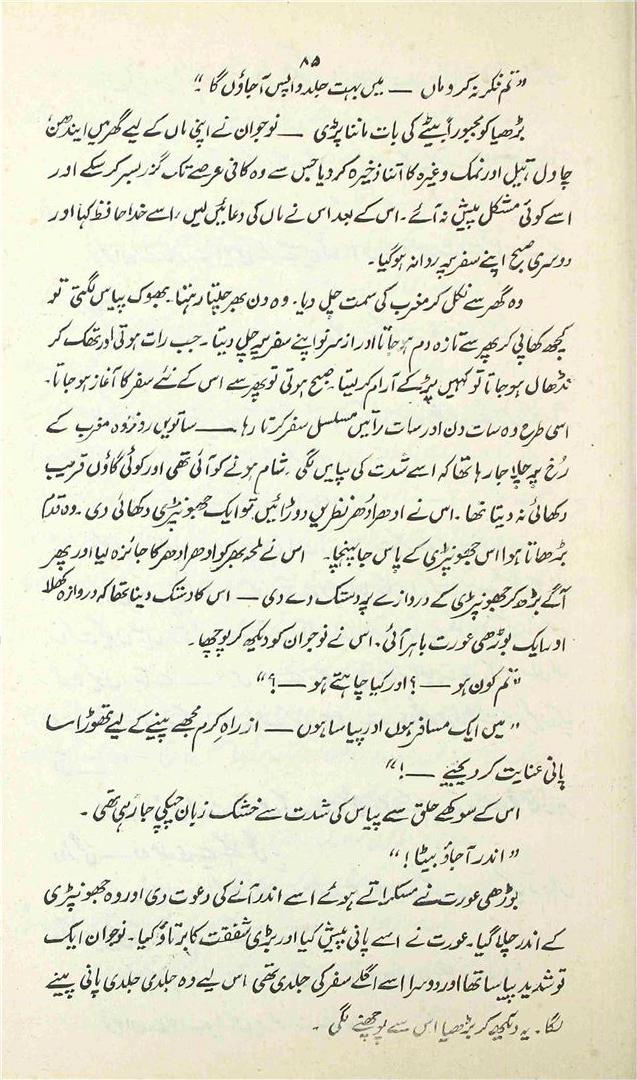 ۸۵
”تم فکر نہ کرو ماں — میں بہت جلد واپس آ جاؤں گا ۔“
بڑھیا کو مجبوراً بیٹے کی بات ماننا پڑی — نوجوان نے اپنی ماں کے لیے گھر میں ایندھن،
چاول، تیل اور نمک وغیرہ کا اتنا ذخیرہ کر دیا جس سے وہ کافی عرصے تک گزر بسر کر سکے اور
اسے کوئی مشکل پیش نہ آئے۔ اس کے بعد اس نے ماں کی دعائیں لیں، اسے خدا حافظ کہا اور
دوسری صبح اپنے سفر پر روانہ ہو گیا۔
وہ گھر سے نکل کر مغرب کی سمت چل دیا۔ وہ دن بھر چلتا رہتا۔ بھوک پیاس لگتی تو
کچھ کھا پی کر پھر سے تازہ دم ہو جاتا اور از سر نو اپنے سفر پر چل دیتا۔ جب رات ہوتی اور تھک کر
نڈھال ہو جاتا تو کہیں پڑ کے آرام کر لیتا، صبح ہوتی تو پھر سے اس کے نئے سفر کا آغاز ہو جاتا۔
اسی طرح وہ سات دن اور سات راتیں مسلسل سفر کرتا رہا — ساتویں روز وہ مغرب کے
رُخ پر چلا جا رہا تھا کہ اسے شدت کی پیاس لگی، شام ہونے کو آئی تھی اور کوئی گاؤں قریب
دکھائی نہ دیتا تھا۔ اس نے ادھر اُدھر نظریں دوڑائیں تو ایک جھونپڑی دکھائی دی۔ وہ قدم
بڑھاتا ہوا اس جھونپڑی کے پاس جا پہنچا۔ اس نے لمحہ بھر کو ادھر ادھر کا جائزہ لیا اور پھر
آگے بڑھ کر جھونپڑی کے دروازے پر دستک دے دی — اس کا دستک دینا تھا کہ دروازہ کھلا
اور ایک بوڑھی عورت باہر آئی، اس نے نوجوان کو دیکھ کر پوچھا۔
”تم کون ہو —؟ اور کیا چاہتے ہو —؟“
”میں ایک مسافر ہوں اور پیاسا ہوں — از راہِ کرم مجھے پینے کے لیے تھوڑا سا
پانی عنایت کر دیجیئے —!“
اس کے سوکھے حلق سے پیاس کی شدت سے خشک زبان چپکی جا رہی تھی ۔
”اندر آ جاؤ بیٹا!“
بوڑھی عورت نے مسکراتے ہوئے اسے اندر آنے کی دعوت دی اور وہ جھونپڑی
کے اندر چلا گیا۔ عورت نے اسے پانی پیش کیا اور بڑی شفقت کا برتاؤ کیا۔ نوجوان ایک
تو شدید پیاسا تھا اور دوسرا اسے اگلے سفر کی جلدی تھی اس لیے وہ جلدی جلدی پانی پینے
لگا۔ یہ دیکھ کر بڑھیا اس سے پوچھنے لگی ۔